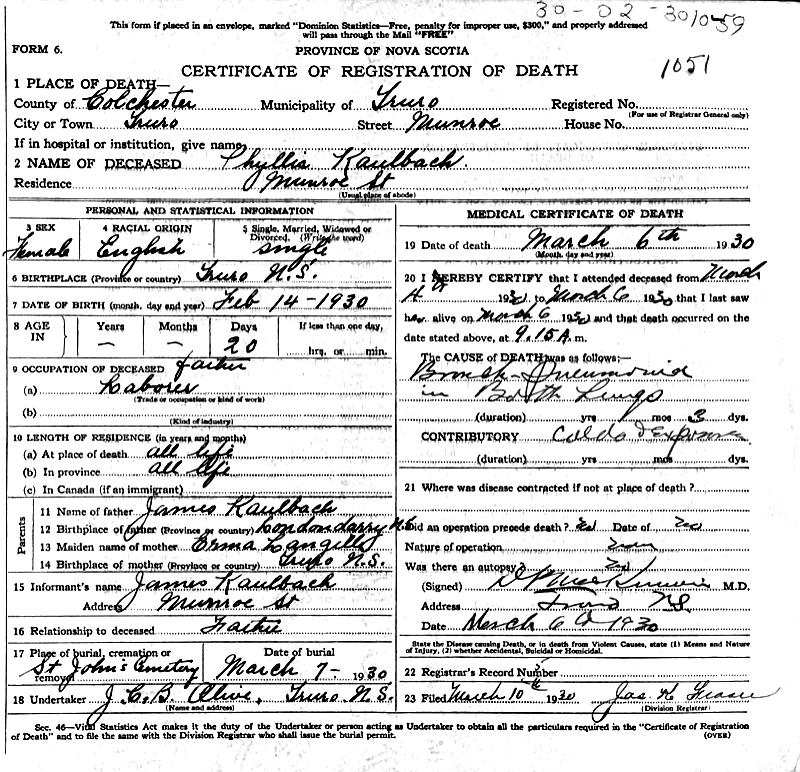 30-02-301059
This form if placed in an envelope, marked "Dominion Statistics—Free, penalty for improper use, $300," and properly addressed
will pass through the Mail "FREE"
FORM 6.
PROVINCE OF NOVA SCOTIA
CERTIFICATE OF REGISTRATION OF DEATH
1051
1 PLACE OF DEATH—
County of Colchester Municipality of Truro Registered No.
(For use of Registrar General only)
City or Town Truro Street Munroe House No.
If in hospital or institution, give name
2 NAME OF DECEASED Phyllis Kaulbach.
Residence Munroe St
(Usual place of abode)
PERSONAL AND STATISTICAL INFORMATION
3 SEX 4 RACIAL ORIGIN 5 Single, Married, Widowed or
Divorced. (Write the word)
Female English single
6 BIRTHPLACE (Province or country) Truro N.S.
7 DATE OF BIRTH (month, day and year) Feb 14-1930
8 AGE IN Years Months Days If less than one day,
— — 20 hrs. or min.
9 OCCUPATION OF DECEASED father
(a) Laborer
(Trade or occupation or kind of work)
(b)
(Kind of industry)
10 LENGTH OF RESIDENCE (in years and months)
(a) At place of death all life
(b) In province all life
(c) In Canada (if an immigrant)
Parents
11 Name of father James Kaulbach
12 Birthplace of father (Province or country) Londondarry N.S
13 Maiden name of mother Erma Langille
14 Birthplace of mother (Province or country) Truro N.S.
15 Informant's name James Kaulbach
Address Munroe St
16 Relationship to deceased Father
17 Place of burial, cremation or removal Date of burial
St John's Cemetery March 7- 1930
18 Undertaker J. C. B. Olive, Truro N.S.
(Name and address)
MEDICAL CERTIFICATE OF DEATH
19 Date of death March 6th 1930
(Month, day and year)
20 I HEREBY CERTIFY that I attended deceased from March
4 1930 to March 6 1930 that I last saw
her alive on March 6 1930 and that death occurred on the
date stated above, at 9.15 A.m.
The CAUSE of DEATH was as follows:—
Bronch-Pneumonia
in Both Lungs
(duration) yrs mos 3 dys.
CONTRIBUTORY Colds & Exposure
(duration) yrs mos dys.
21 Where was disease contracted if not at place of death?
Did an operation precede death? no Date of no
Nature of operation
Was there an autopsy? no
(Signed) M.D.
Address Truro NS.
Date March 6th 1930
State the Disease causing Death, or in death from Violent Causes, state (1) Means and Nature
of Injury, (2) whether Accidental, Suicidal or Homicidal.
22 Registrar's Record Number
23 Filed March 10th 1930 Jas. K. Fraser
(Division Registrar)
Sec. 46—Vital Statistics Act makes it the duty of the Undertaker or person acting as Undertaker to obtain all the particulars required in the "Certificate of Registration
of Death" and to file the same with the Division Registrar who shall issue the burial permit. (OVER)